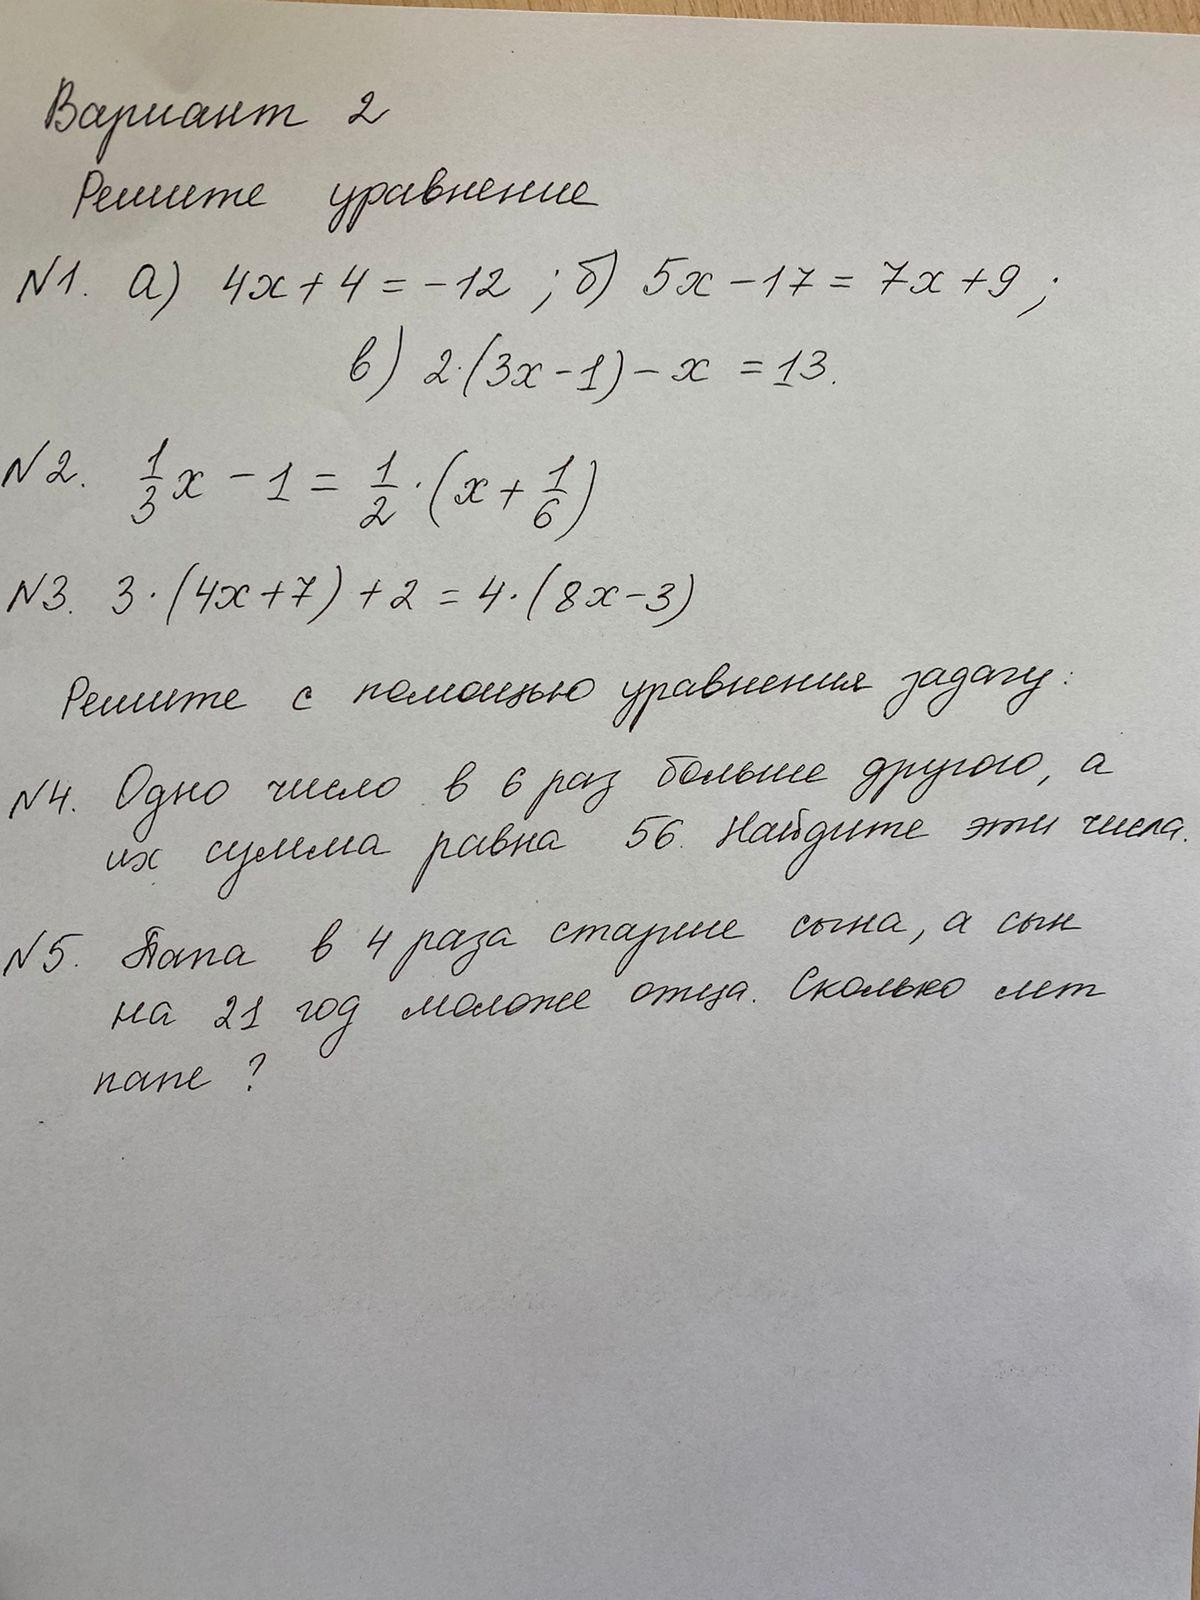 Вариант 2
Решите уравнение
N1. а) 4x + 4 = -12 ; б) 5x - 17 = 7x + 9 ;
в) 2·(3x - 1) - x = 13.
N2. 1/3 x - 1 = 1/2 · (x + 1/6)
N3. 3·(4x + 7) + 2 = 4·(8x - 3)
Решите с помощью уравнения задачу:
N4. Одно число в 6 раз больше другого, а
их сумма равна 56. Найдите эти числа.
N5. Папа в 4 раза старше сына, а сын
на 21 год моложе отца. Сколько лет
папе ?